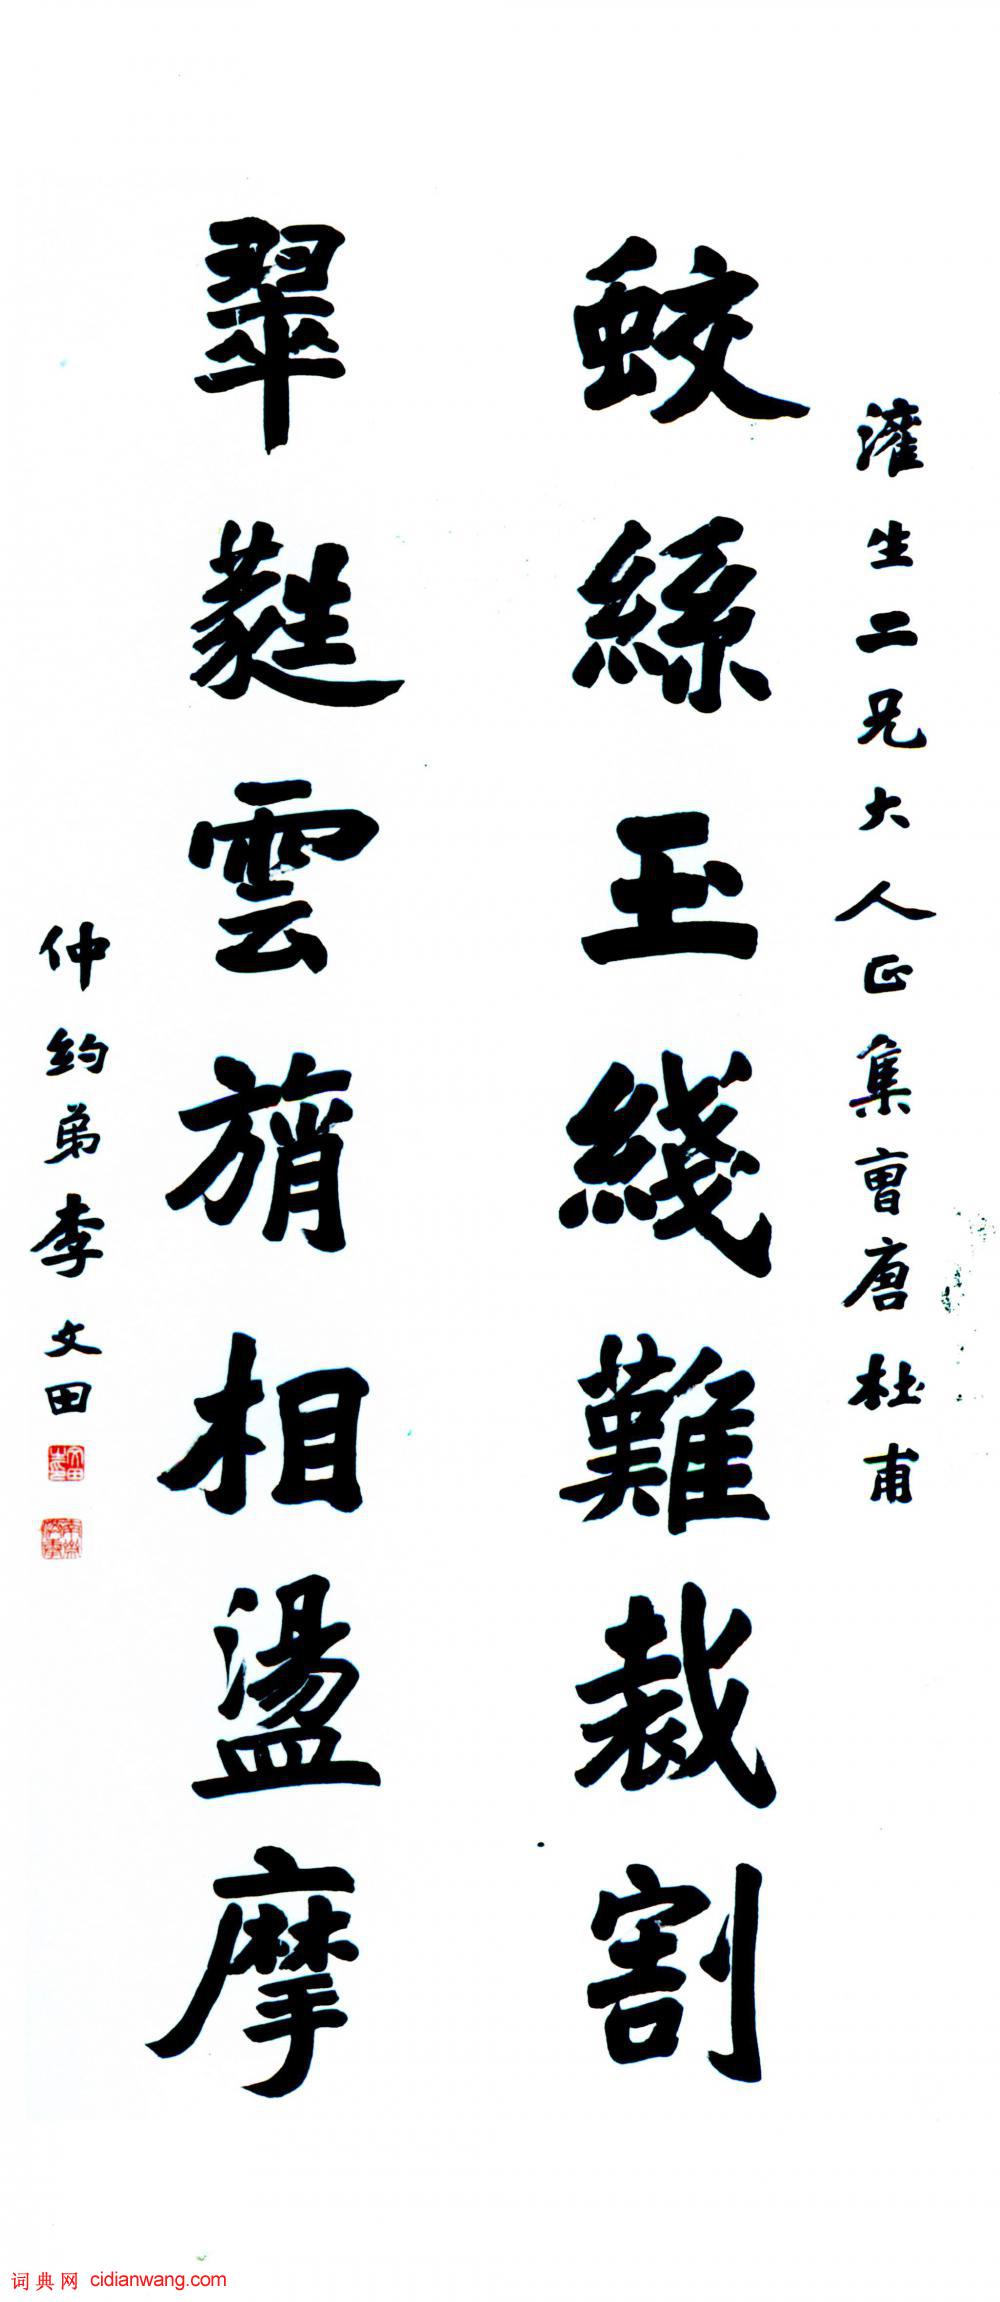 灌生二兄大人正集曺唐杜甫
蛟絲玉綫難裁割
翠蕤雲旓相盪摩
仲約弟李文田
词典网 cidianwang.com